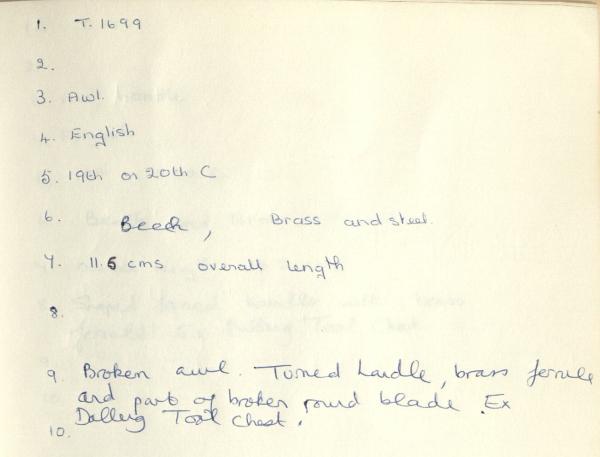 1. T. 1699
2.
3. Awl.
4. English
5. 19th or 20th C
6. Beech, Brass and steel.
7. 11.5 cms overall length
8.
9. Broken awl. Turned handle, brass ferrule
and part of broken round blade. Ex
Tool Chest.
10.